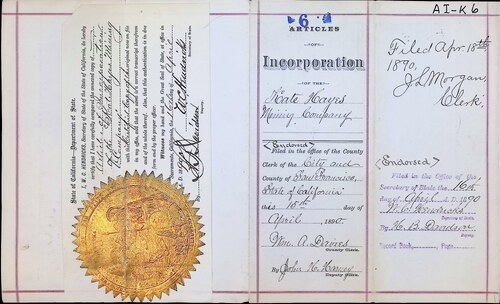 State of California—Department of State.
I, W. C. HENDRICKS, Secretary of State of the State of California, do hereby
certify that I have carefully compared the annexed copy of
Articles of Incorporation
of The Kate Hayes Mining
Company
with the
original now on file
in my office, and that the same is a correct transcript therefrom
and of the whole thereof. Also, that this authentication is in due
form and by the proper officer.
Witness my hand and the Great Seal of State, at office in
Sacramento, California, the
day of April
A. D. 18
W. C. Hendricks
Secretary of State.
By
Deputy.
6
ARTICLES
OF
Incorporation
OF THE
Kate Hayes
Mining Company
(Endorsed)
Filed in the Office of the County
Clerk of the City and
County of San Francisco,
State of California
this 15th day of
April, 1890
Wm. A. Davies
County Clerk.
By John H. Harney
Deputy Clerk.
AI-K6
Filed Apr. 18th
1890.
J L Morgan,
Clerk.
(Endorsed)
Filed in the Office of the
Secretary of State the 16th
day of April A. D. 1890
W. C. Hendricks
Secretary of State
By H. B. Davidson
Deputy.
Record Book, Page